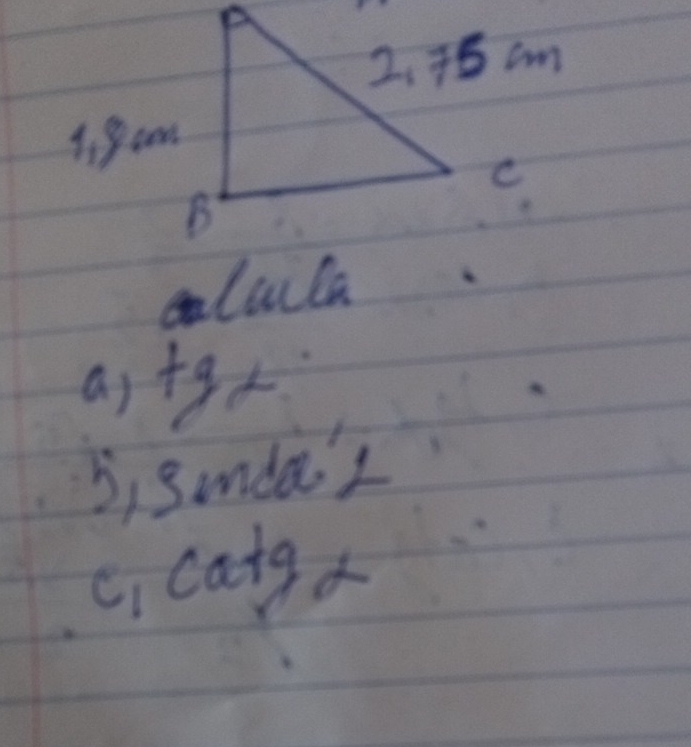 2,75 cm
1,8 cm
C
B
calcula
a) tg α
b, sinda' α
c, catg α